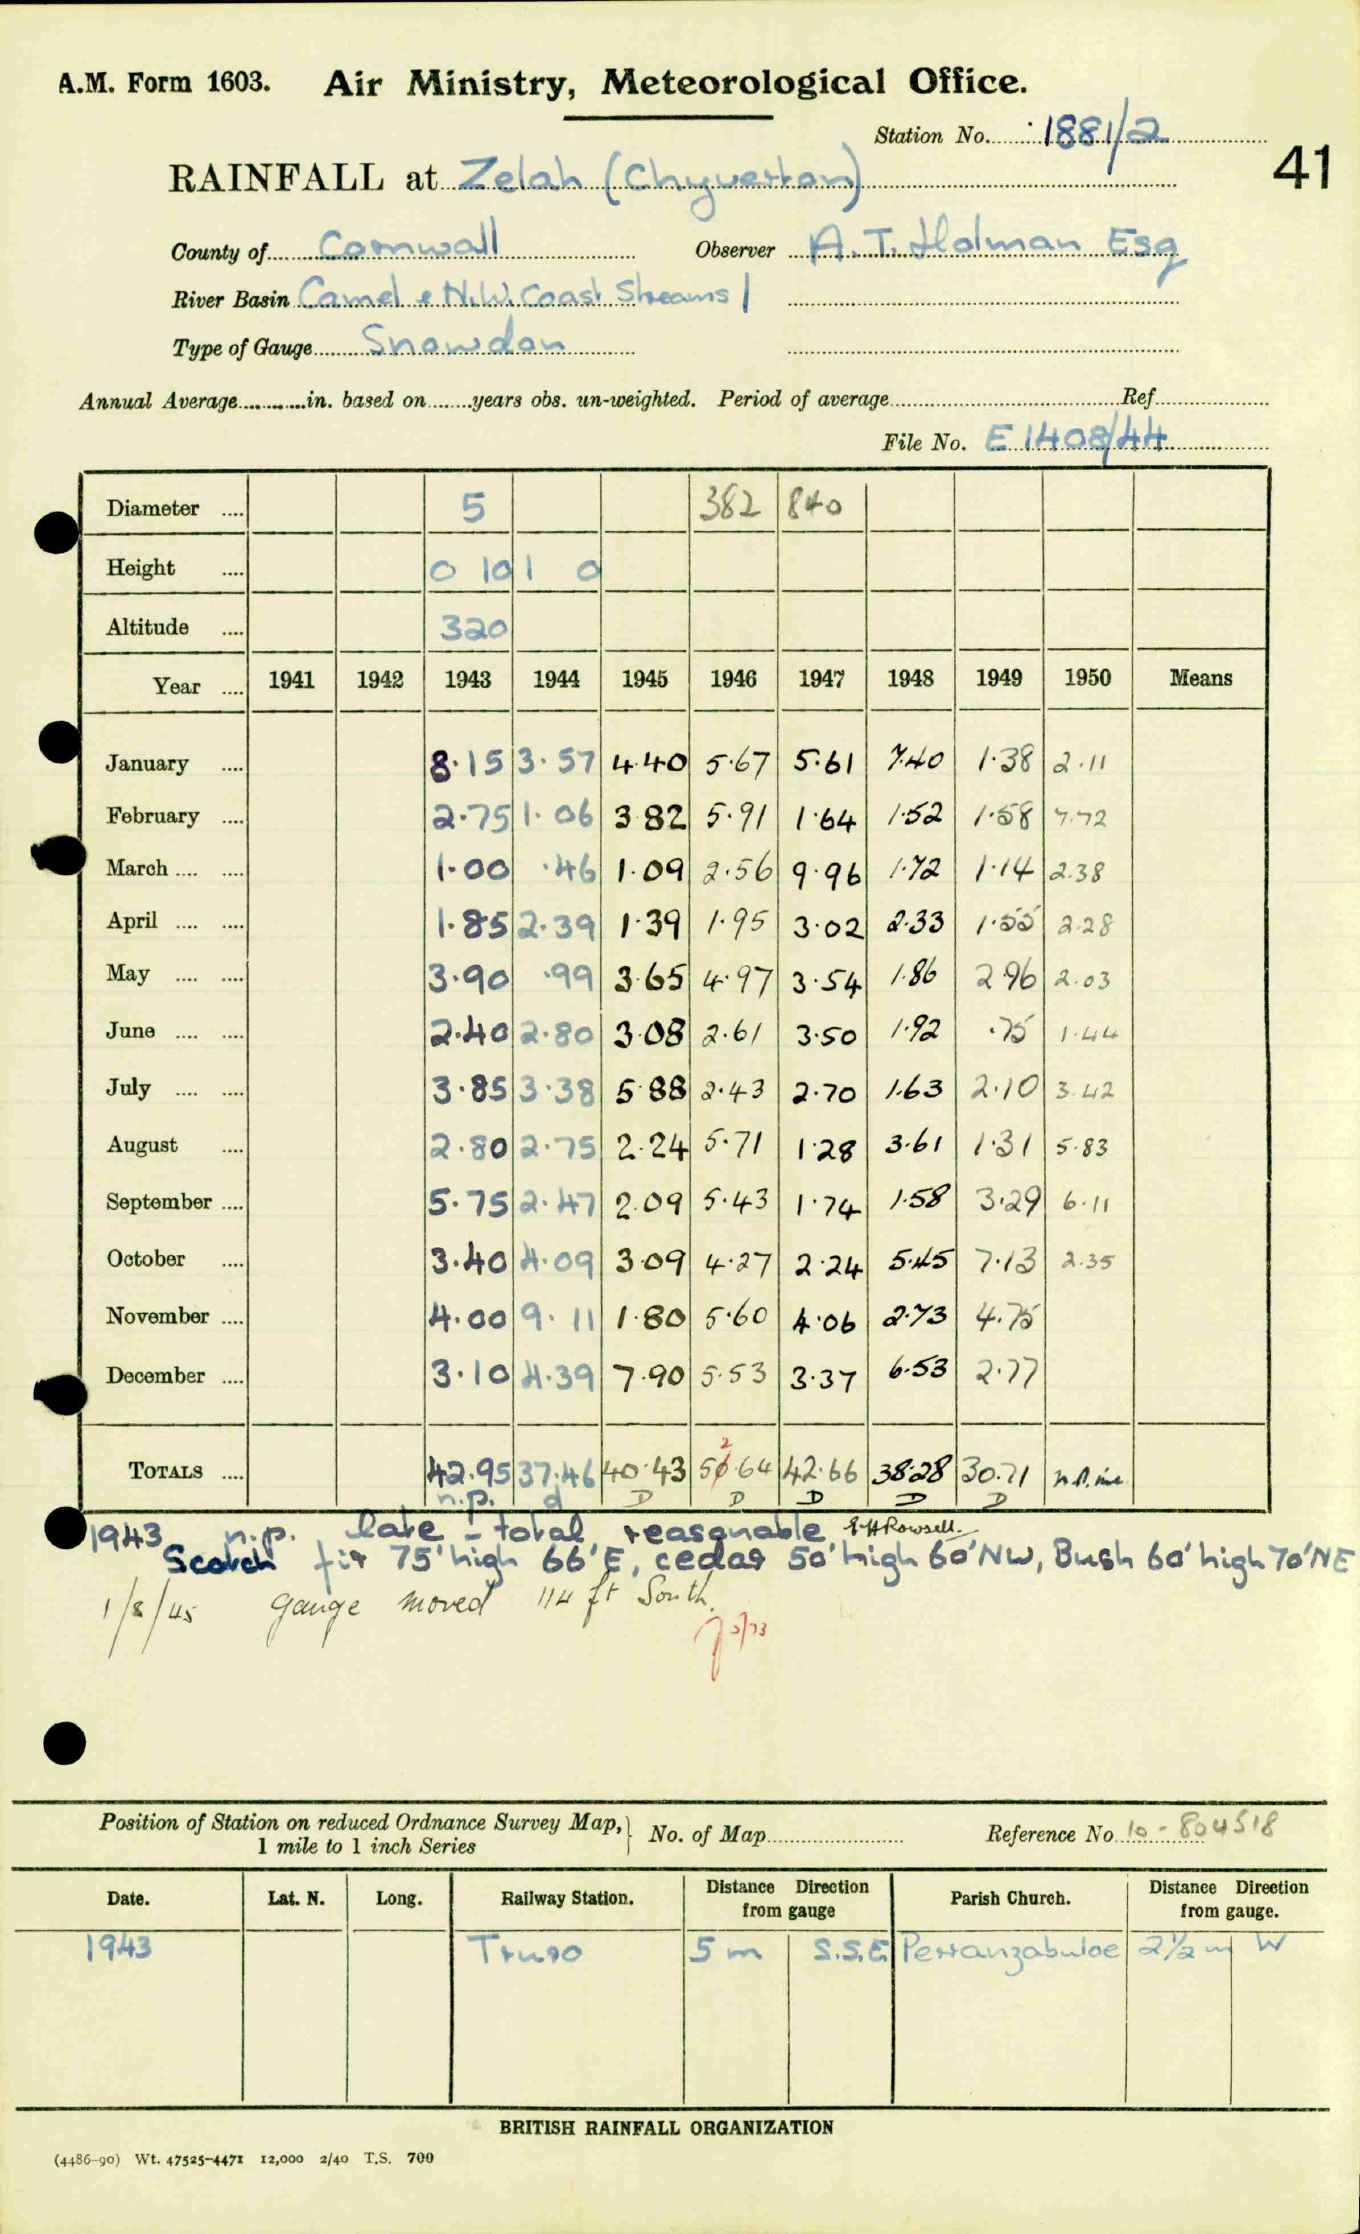 A.M. Form 1603. Air Ministry, Meteorological Office.
Station No. 1881/2
41
RAINFALL at Zelah (Chyverton)
County of Cornwall Observer A. T. Holman Esq
River Basin Camel & N.W. Coast Streams
Type of Gauge Snowdon
Annual Average in. based on years obs. un-weighted. Period of average Ref
File No. E 1408/44
Diameter 5 382 840
Height 0 10 1 0
Altitude 320
Year 1941 1942 1943 1944 1945 1946 1947 1948 1949 1950 Means
January 8.15 3.57 4.40 5.67 5.61 7.40 1.38 2.11
February 2.75 1.06 3.82 5.91 1.64 1.52 1.58 7.72
March 1.00 .46 1.09 2.56 9.96 1.72 1.14 2.38
April 1.85 2.39 1.39 1.95 3.02 2.33 1.55 2.28
May 3.90 .99 3.65 4.97 3.54 1.86 2.96 2.03
June 2.40 2.80 3.08 2.61 3.50 1.92 .75 1.44
July 3.85 3.38 5.88 2.43 2.70 1.63 2.10 3.42
August 2.80 2.75 2.24 5.71 1.28 3.61 1.31 5.83
September 5.75 2.47 2.09 5.43 1.74 1.58 3.29 6.11
October 3.40 4.09 3.09 4.27 2.24 5.45 7.13 2.35
November 4.00 9.11 1.80 5.60 4.06 2.73 4.75
December 3.10 4.39 7.90 5.53 3.37 6.53 2.77
2
TOTALS 42.95 37.46 40.43 50.64 42.66 38.28 30.71 n.p. inc.
n.p. d D D D D D
1943 n.p. late - total reasonable E H Rowsell.
Scotch fir 75' high 66' E, cedar 50' high 60' NW, Bush 60' high 70' NE
1/8/45 gauge moved 114 ft South.
3/73
Position of Station on reduced Ordnance Survey Map, 1 mile to 1 inch Series No. of Map Reference No 10-804518
Date. Lat. N. Long. Railway Station. Distance Direction from gauge Parish Church. Distance Direction from gauge.
1943 Truro 5 m S.S.E Perranzabuloe 2½ m W
BRITISH RAINFALL ORGANIZATION
(4486-90) Wt. 47525-4471 12,000 2/40 T.S. 700